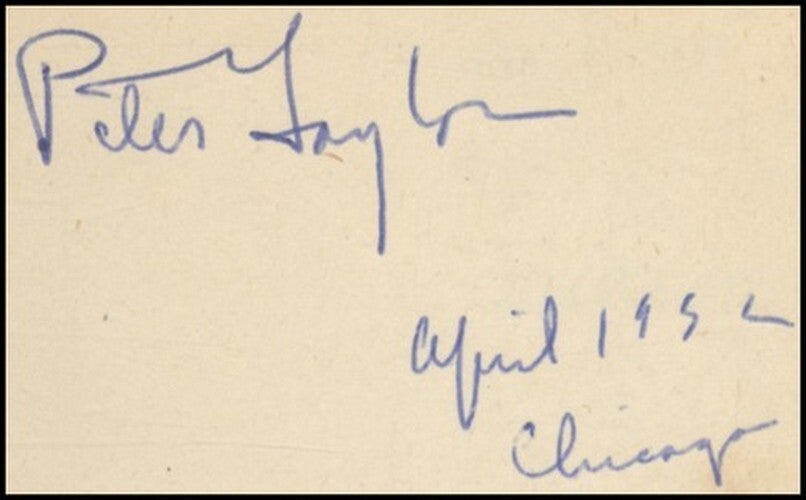 Peter Taylor
April 1952
Chicago